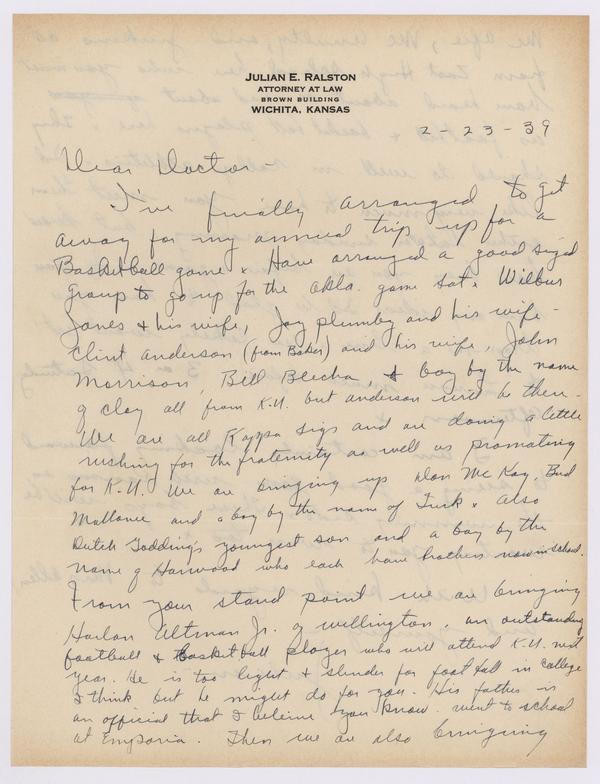 JULIAN E. RALSTON
ATTORNEY AT LAW
BROWN BUILDING
WICHITA, KANSAS
2-23-39
Dear Doctor-
I've finally arranged to get
away for my annual trip up for a
Basketball game & Have arranged a good sized
group to go up for the Okla. game Sat & Wilbur
Jones & his wife, Jay Plumby and his wife -
Clint Anderson (from Baker) and his wife, John
Morrison, Bill Blecha, & boy by the name
of Clay all from K.U. but Anderson will be there -
We are all Kappa Sigs and are doing a little
rushing for the fraternity as well as promoting
for K.U. We are bringing up Don McKay, Bud
and a boy by the name of Turk & Also
Dutch youngest son and a boy by the
name of Harwood who each have brothers now in school.
From your stand point we are bringing
Harlan Altman Jr. of Wellington. an outstanding
football & basketball player who will attend K.U. next
year. He is too light & slender for football in college
I think but he might do for you. His father is
an official that I believe you know. went to school
at Emporia. Then we are also bringing